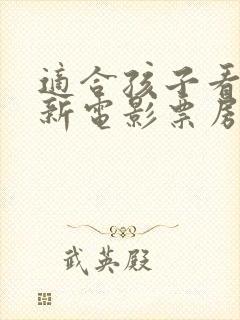 適合孩子看
新電影票房
武英殿